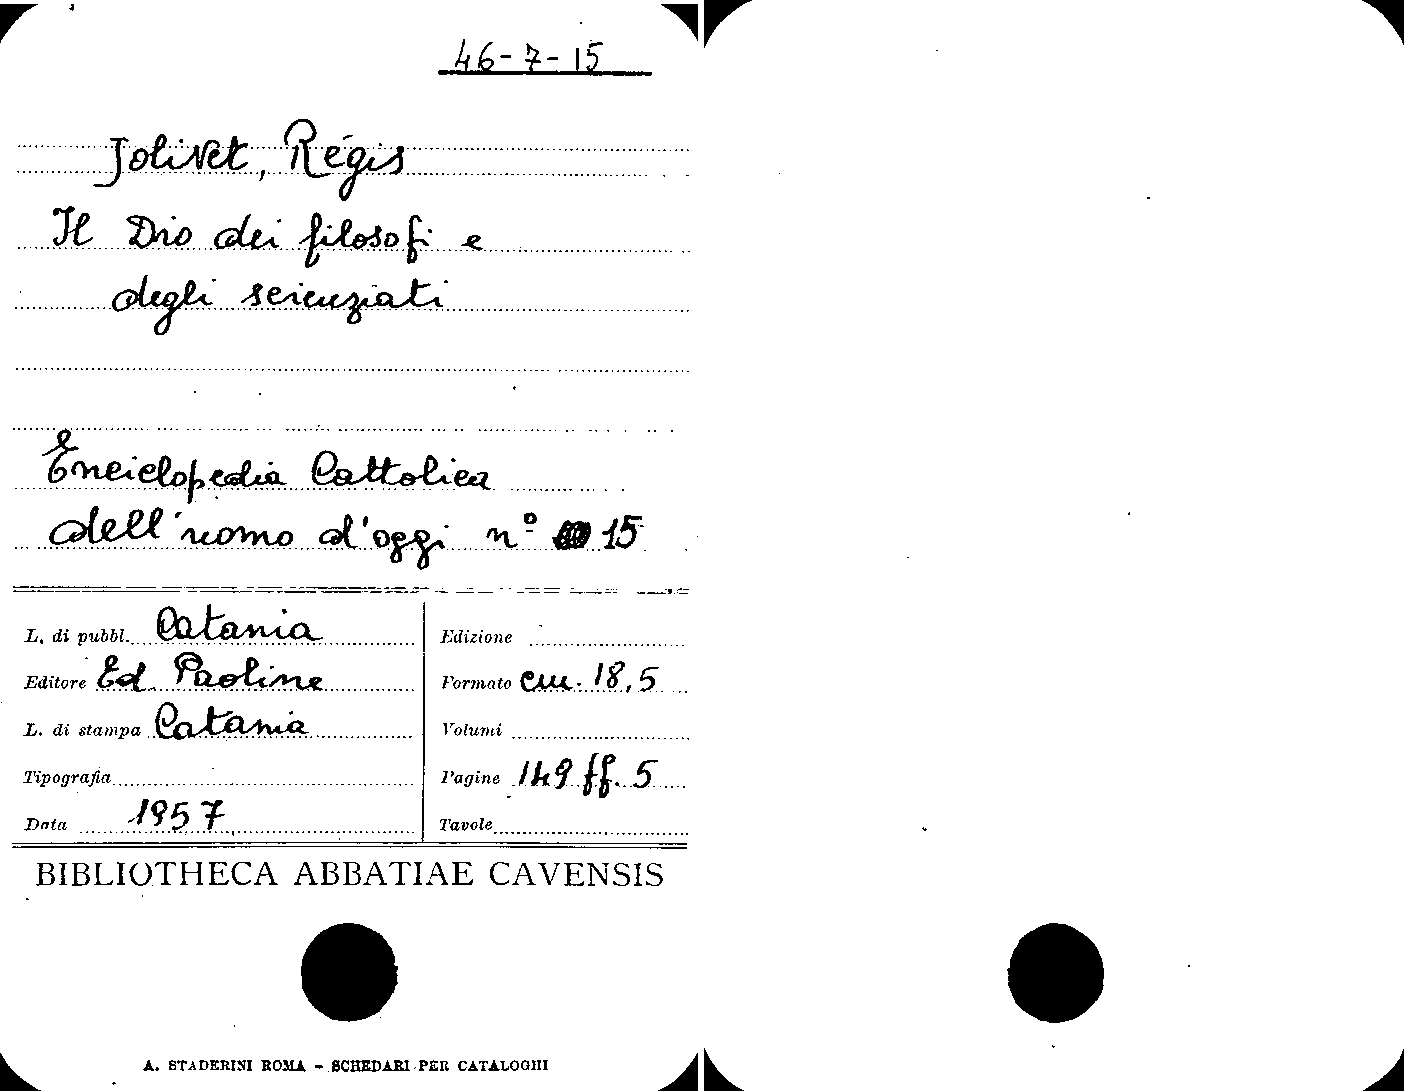 46-7-15
Jolivet, Régis
Il Dio dei filosofi e
degli scienziati
Enciclopedia Cattolica
dell'uomo d'oggi n° 15
L. di pubbl. Catania
Editore Ed. Paoline
L. di stampa Catania
Tipografia
Data 1957
Edizione
Formato cm. 18,5
Volumi
Pagine 149 ff. 5
Tavole
BIBLIOTHECA ABBATIAE CAVENSIS
A. STADERINI ROMA - SCHEDARI PER CATALOGHI